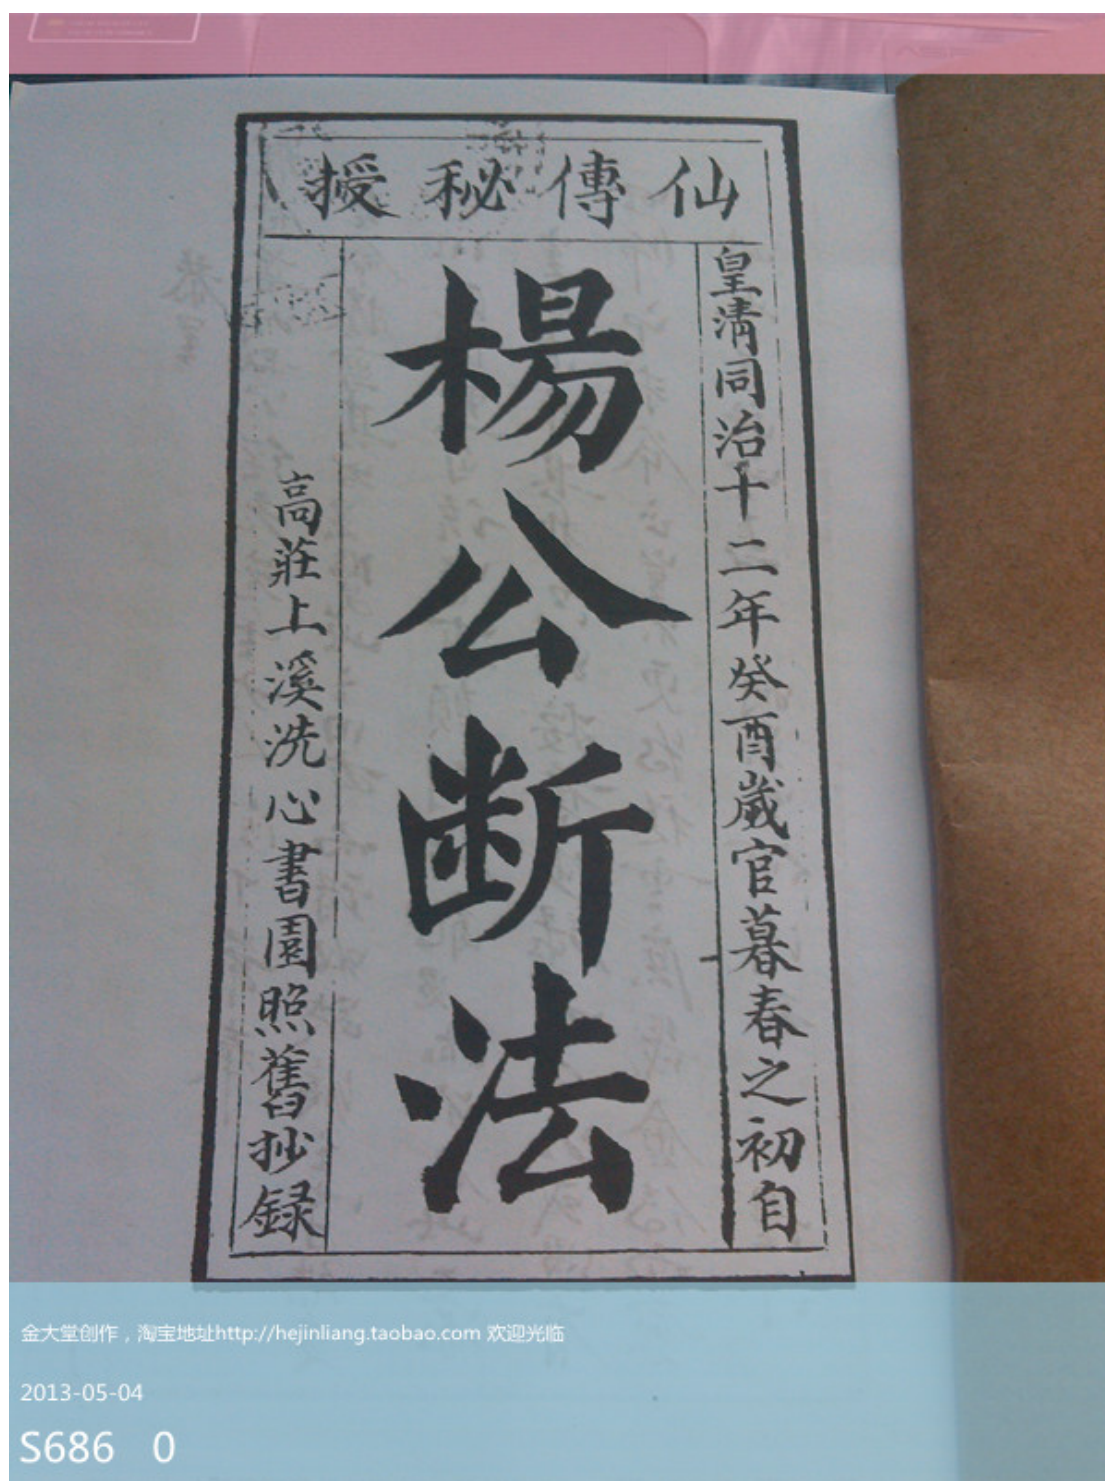 仙傳秘授
皇清同治十二年癸酉歲官暮春之初自
楊公断法
高莊上溪洗心書園照舊抄録
金大堂创作，淘宝地址http://hejinliang.taobao.com 欢迎光临
2013-05-04
S686 0